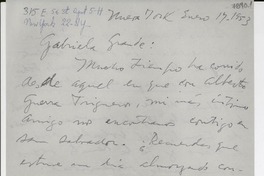 315 E. 54 st Apt 5-H
Nueva York Enero 17, 1953
Gabriela Grande:
Mucho tiempo ha corrido
desde aquel en que con Alberto
Guerra Trigueros, mi más íntimo
amigo nos encontramos contigo en
San Salvador. ¿Recuerdas que
estuve un día almorzando con-